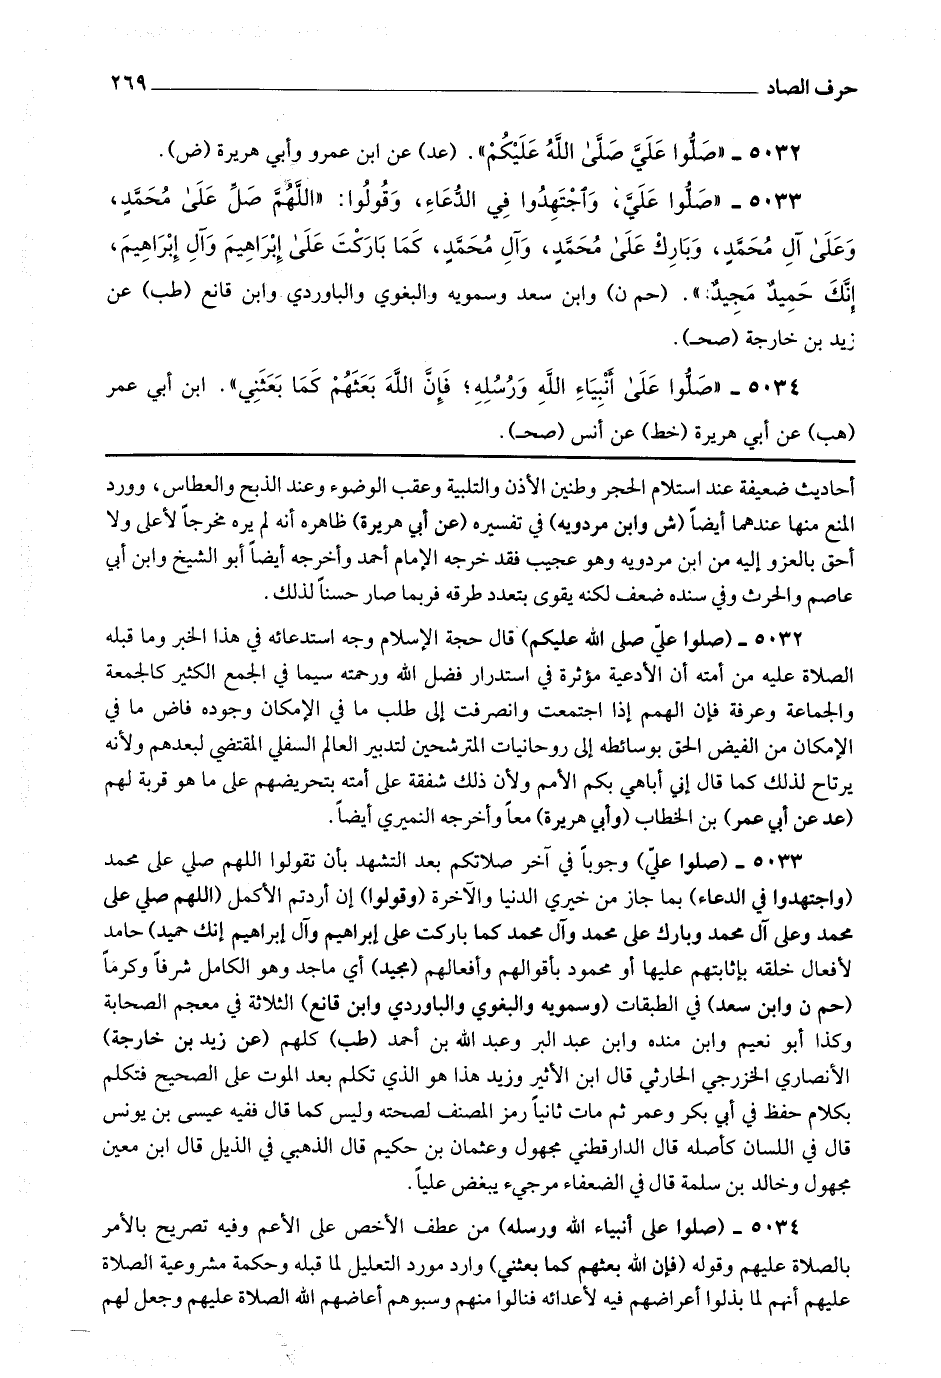 حرف الصاد ٢٦٩
٥٠٣٢ ـ «صَلُّوا عَلَيَّ صَلَّىٰ اللَّهُ عَلَيْكُمْ». (عد) عن ابن عمرو وأبي هريرة (ض).
٥٠٣٣ ـ «صَلُّوا عَلَيَّ، وَٱجْتَهِدُوا فِي الدُّعَاءِ، وَقُولُوا: «اللَّهُمَّ صَلِّ عَلَىٰ مُحَمَّدٍ،
وَعَلَىٰ آلِ مُحَمَّدٍ، وَبَارِكْ عَلَىٰ مُحَمَّدٍ، وَآلِ مُحَمَّدٍ، كَمَا بَارَكْتَ عَلَىٰ إِبْرَاهِيمَ وَآلِ إِبْرَاهِيمَ،
إِنَّكَ حَمِيدٌ مَجِيدٌ». (حم ن) وابن سعد وسمويه والبغوي والباوردي وابن قانع (طب) عن
زيد بن خارجة (صحـ).
٥٠٣٤ ـ «صَلُّوا عَلَىٰ أَنْبِيَاءِ اللَّهِ وَرُسُلِهِ؛ فَإِنَّ اللَّهَ بَعَثَهُمْ كَمَا بَعَثَنِي». ابن أبي عمر
(هب) عن أبي هريرة (خط) عن أنس (صحـ).
أحاديث ضعيفة عند استلام الحجر وطنين الأذن والتلبية وعقب الوضوء وعند الذبح والعطاس، وورد
المنع منها عندهما أيضاً (ش وابن مردويه) في تفسيره (عن أبي هريرة) ظاهره أنه لم يره مخرجاً لأعلى ولا
أحق بالعزو إليه من ابن مردويه وهو عجيب فقد خرجه الإمام أحمد وأخرجه أيضاً أبو الشيخ وابن أبي
عاصم والحرث وفي سنده ضعف لكنه يقوى بتعدد طرقه فربما صار حسناً لذلك.
٥٠٣٢ ـ (صلوا عليّ صلى الله عليكم) قال حجة الإسلام وجه استدعائه في هذا الخبر وما قبله
الصلاة عليه من أمته أن الأدعية مؤثرة في استدرار فضل الله ورحمته سيما في الجمع الكثير كالجمعة
والجماعة وعرفة فإن الهمم إذا اجتمعت وانصرفت إلى طلب ما في الإمكان وجوده فاض ما في
الإمكان من الفيض الحق بوسائطه إلى روحانيات المترشحين لتدبير العالم السفلي المقتضي لبعدهم ولأنه
يرتاح لذلك كما قال إني أباهي بكم الأمم ولأن ذلك شفقة على أمته بتحريضهم على ما هو قربة لهم
(عد عن أبي عمر) بن الخطاب (وأبي هريرة) معاً وأخرجه النميري أيضاً.
٥٠٣٣ ـ (صلوا عليّ) وجوباً في آخر صلاتكم بعد التشهد بأن تقولوا اللهم صلي على محمد
(واجتهدوا في الدعاء) بما جاز من خيري الدنيا والآخرة (وقولوا) إن أردتم الأكمل (اللهم صلي على
محمد وعلى آل محمد وبارك على محمد وآل محمد كما باركت على إبراهيم وآل إبراهيم إنك حميد) حامد
لأفعال خلقه بإثابتهم عليها أو محمود بأقوالهم وأفعالهم (مجيد) أي ماجد وهو الكامل شرفاً وكرماً
(حم ن وابن سعد) في الطبقات (وسمويه والبغوي والباوردي وابن قانع) الثلاثة في معجم الصحابة
وكذا أبو نعيم وابن منده وابن عبد البر وعبد الله بن أحمد (طب) كلهم (عن زيد بن خارجة)
الأنصاري الخزرجي الحارثي قال ابن الأثير وزيد هذا هو الذي تكلم بعد الموت على الصحيح فتكلم
بكلام حفظ في أبي بكر وعمر ثم مات ثانياً رمز المصنف لصحته وليس كما قال ففيه عيسى بن يونس
قال في اللسان كأصله قال الدارقطني مجهول وعثمان بن حكيم قال الذهبي في الذيل قال ابن معين
مجهول وخالد بن سلمة قال في الضعفاء مرجيء يبغض علياً.
٥٠٣٤ ـ (صلوا على أنبياء الله ورسله) من عطف الأخص على الأعم وفيه تصريح بالأمر
بالصلاة عليهم وقوله (فإن الله بعثهم كما بعثني) وارد مورد التعليل لما قبله وحكمة مشروعية الصلاة
عليهم أنهم لما بذلوا أعراضهم فيه لأعدائه فنالوا منهم وسبوهم أعاضهم الله الصلاة عليهم وجعل لهم